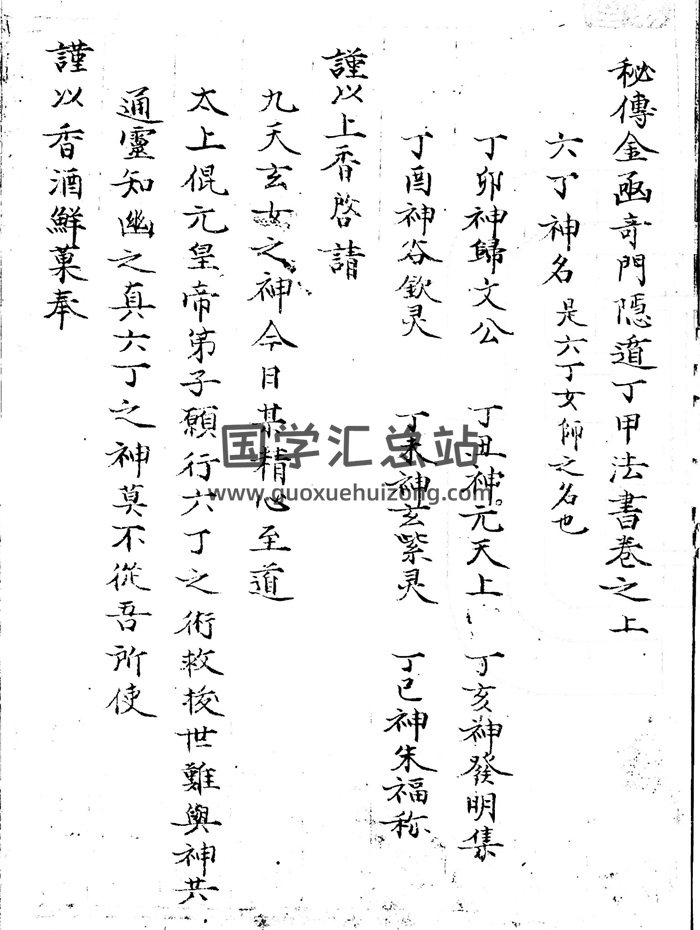 秘傳金函奇門隱遁丁甲法書卷之上
六丁神名 是六丁女師之名也
丁卯神歸文公 丁丑神元天上 丁亥神發明集
丁酉神谷欽灵 丁未神玄紫灵 丁巳神朱福称
謹以上香啓請
九天玄女之神今日某精心至道
太上倱元皇帝弟子願行六丁之術救拔世難與神共
通靈知幽之真六丁之神莫不從吾所使
謹以香酒鮮菓奉
国学汇总站
www.guoxuehuizong.com